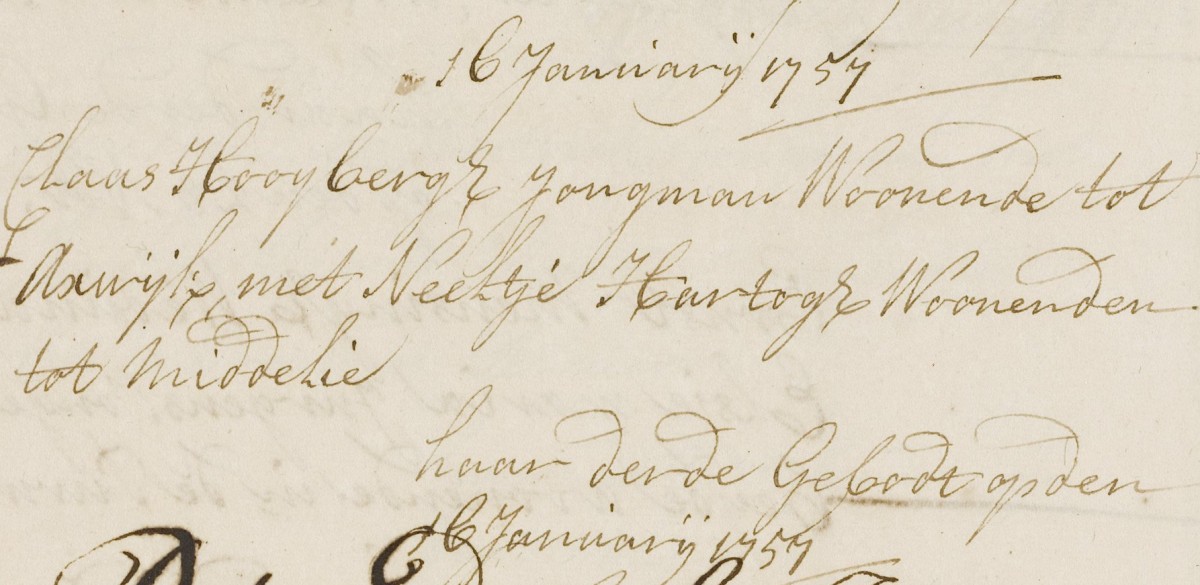 16 Januarij 1757
Claas Hooybergh jongman Woonende tot
Axwijk, met Neeltje Hartogh Woonenden
tot Middelie
haar derde Gebodt op den
16 Januarij 1757